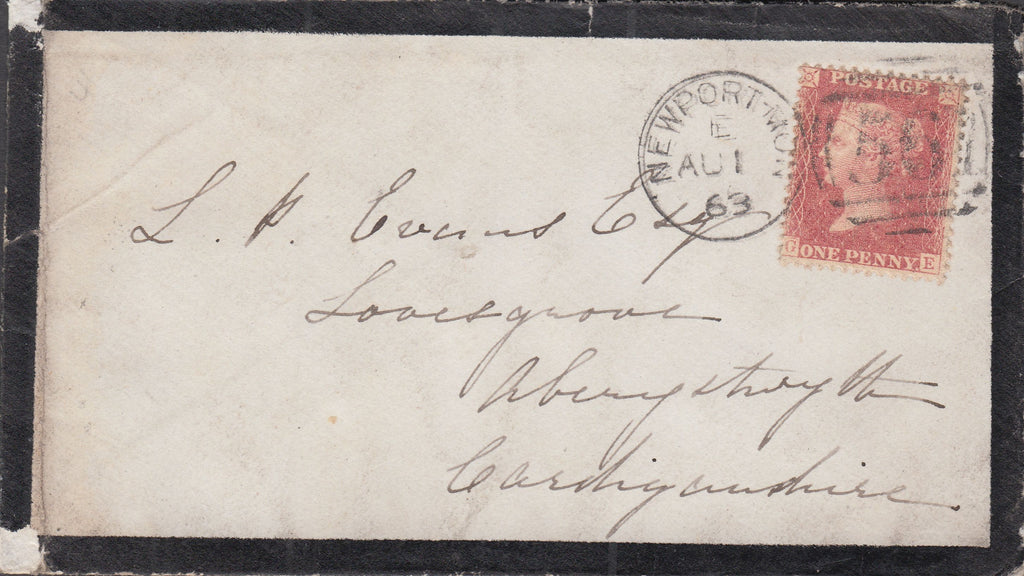 NEWPORT-MON
E
AU 1
63
POSTAGE
G ONE PENNY E
L. P. Evans Esq
Lovesgrove
Aberystwyth
Cardiganshire